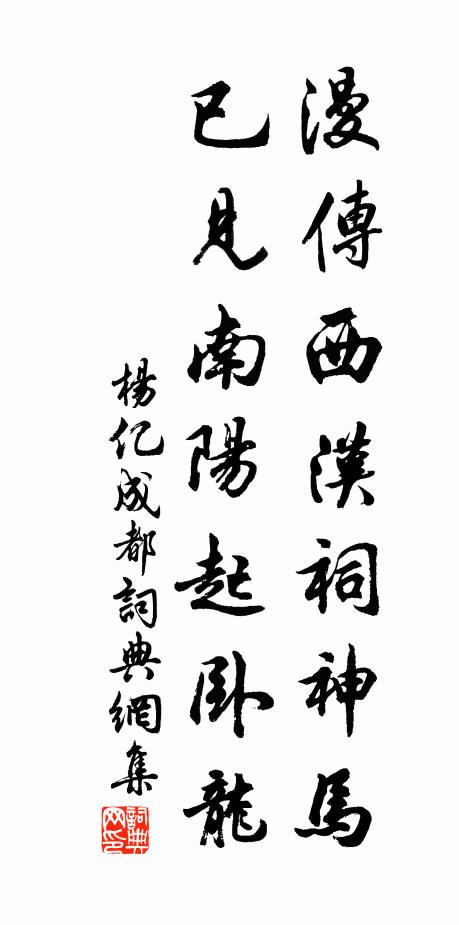 漫傳西漢祠神馬
已見南陽起臥龍
楊亿成都詞典網集
詞典网印